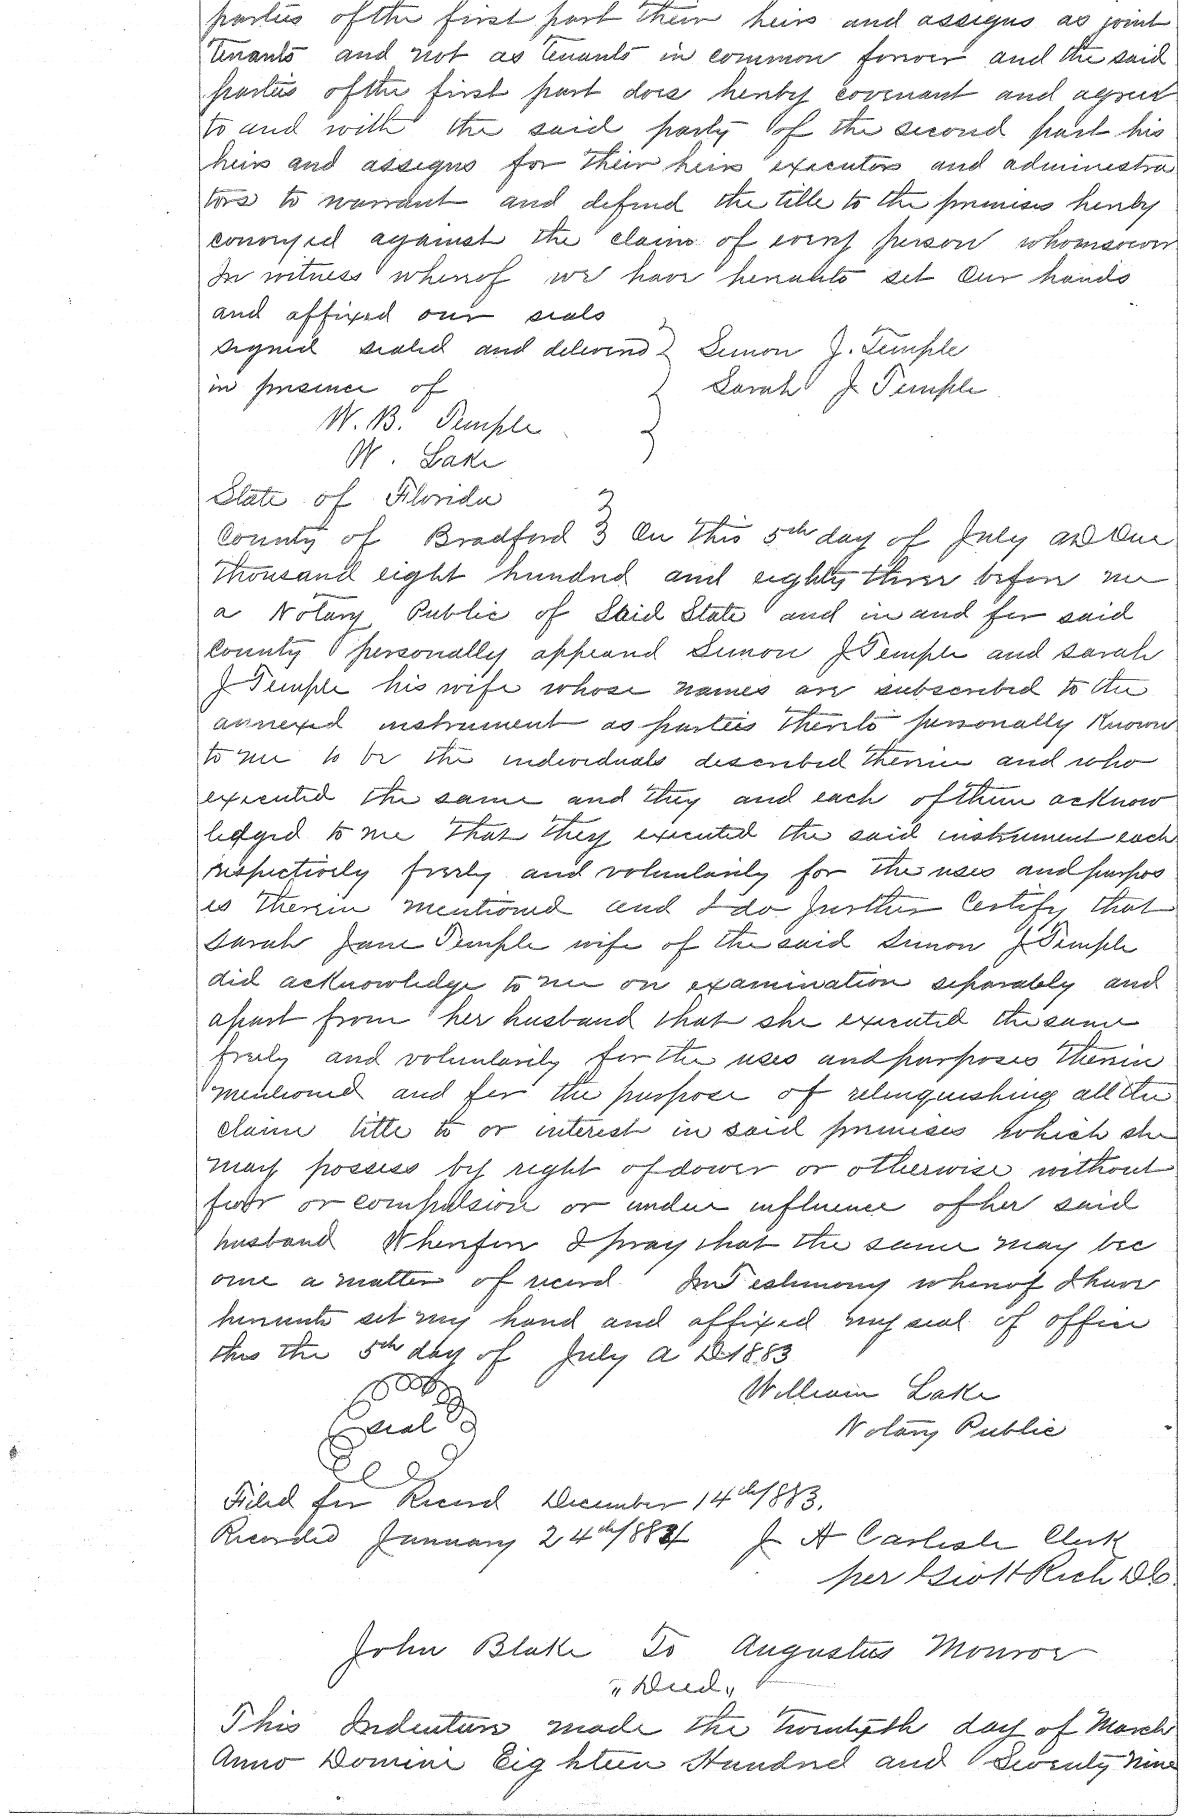 parties of the first part their heirs and assigns as joint
Tenants and not as Tenants in common forever and the said
parties of the first part does hereby covenant and agreed
to and with the said party of the second part his
heirs and assigns for their heirs executors and administra
tors to warrant and defend the title to the premises hereby
conveyed against the claim of every person whomsoever
In witness whereof we have hereunto set Our hands
and affixed our seals
signed sealed and delivered } Simon J. Temple
in presence of } Sarah J Temple
W. B. Temple }
W. Lake
State of Florida }
County of Bradford } On this 5th day of July AD One
thousand eight hundred and eighty three before me
a Notary Public of Said State and in and for said
County personally appeared Simon J Temple and Sarah
J Temple his wife whose names are subscribed to the
annexed instrument as parties thereto personally Known
to me to be the individuals described therein and who
executed the same and they and each of them acknow
ledged to me that they executed the said instrument each
respectively freely and voluntarily for the uses and purpos
es therein mentioned and I do further Certify that
Sarah Jane Temple wife of the said Simon J Temple
did acknowledge to me on examination separately and
apart from her husband that she executed the same
freely and voluntarily for the uses and purposes therein
mentioned and for the purpose of relinquishing all the
claim title to or interest in said premises which she
may possess by right of dower or otherwise without
fear or compulsion or undue influence of her said
husband Wherefore I pray that the same may bec
ome a matter of record In Testimony whereof I have
hereunto set my hand and affixed my seal of office
this the 5th day of July A D 1883
William Lake
seal
Notary Public
Filed for Record December 14th/883.
Recorded January 24th/884 J A Carlisle Clerk
per Geo H Rich DC.
John Blake To Augustus Monroe
"Deed"
This Indenture made the Twentyth day of March
Anno Domini Eighteen Hundred and Seventy Nine